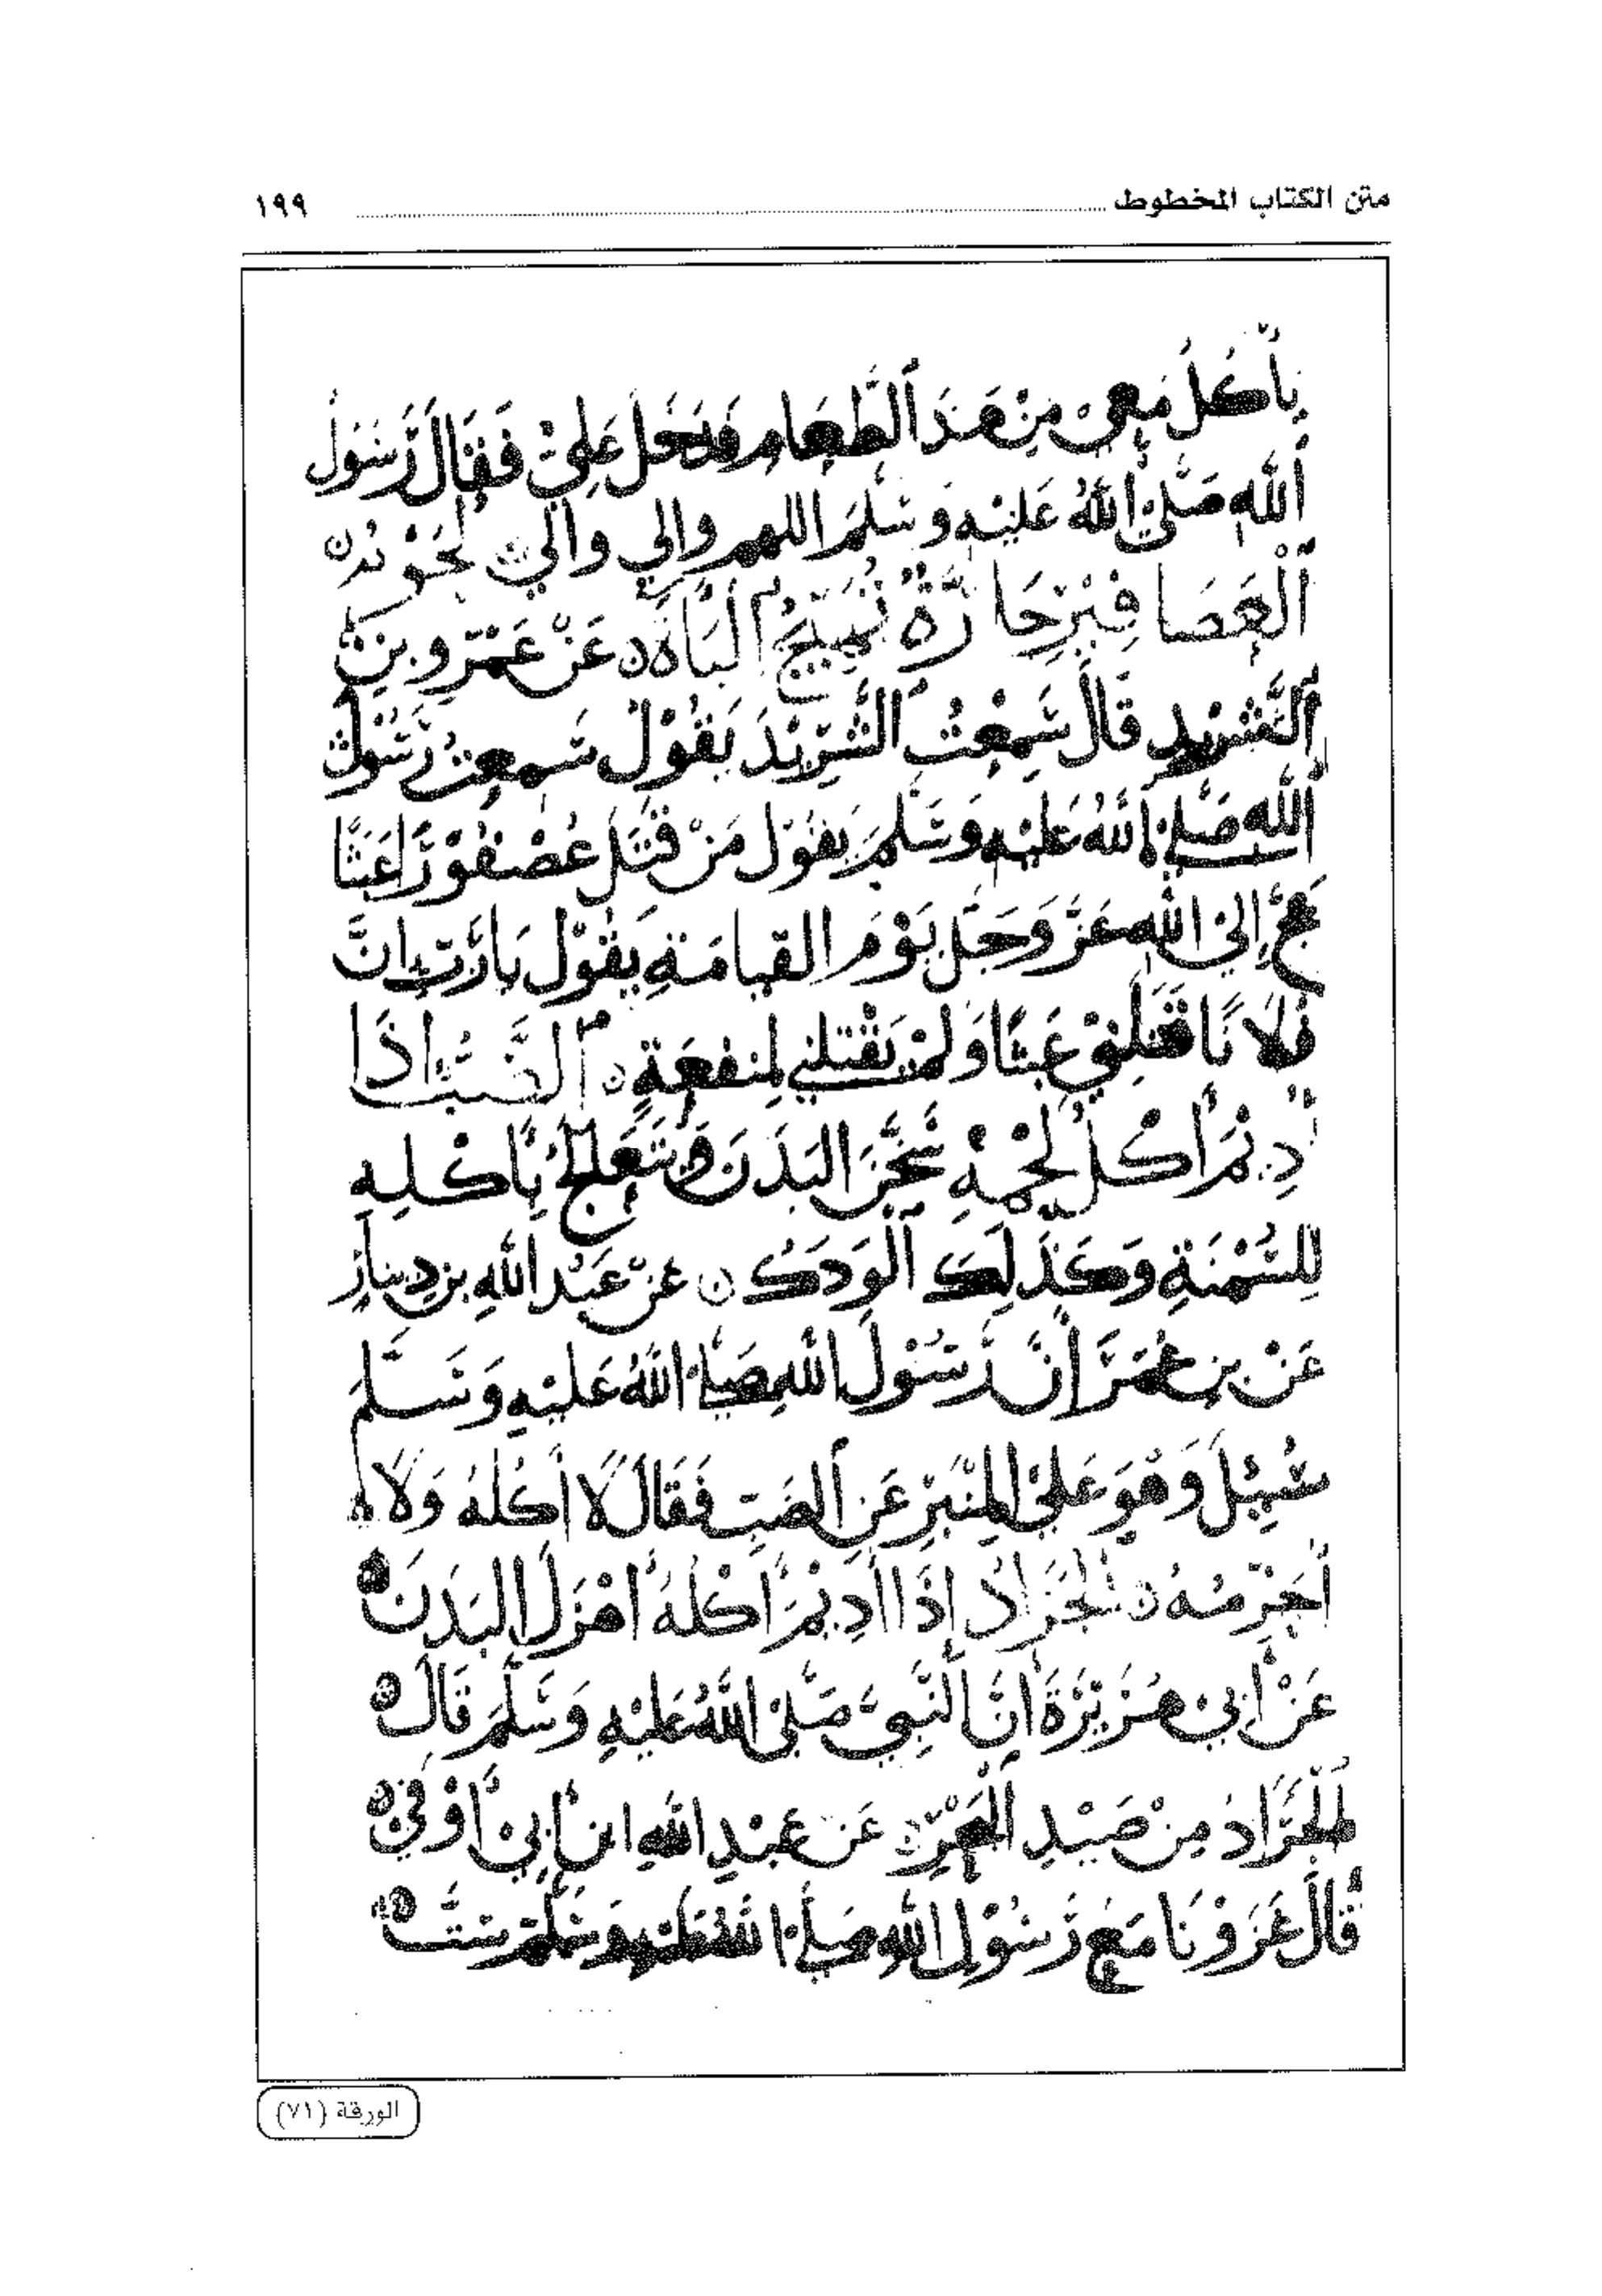 متن الكتاب المخطوط ١٩٩
يأكل معي من هذا الطعام فدخل علي فقال رسول
الله صلى الله عليه وسلم اللهم والي والي لحوم
العصافير حارة تهيج الباه عن عمرو بن
الشريد قال سمعت الشريد يقول سمعت رسول
الله صلى الله عليه وسلم يقول من قتل عصفورا عبثا
عج إلى الله عز وجل يوم القيامة يقول يا رب إن
فلانا قتلني عبثا ولم يقتلني لمنفعة الضب إذا
أديم أكل لحمه سخن البدن ويتعالج بأكله
للسمنة وكذلك الودك عن عبد الله بن دينار
عن بن عمر أن رسول الله صلى الله عليه وسلم
سئل وهو على المنبر عن الضب فقال لا أكله ولا
أحرمه الجراد إذا أديم أكله أهزل البدن
عن أبي هريرة أن النبي صلى الله عليه وسلم قال
الجراد من صيد البحر عن عبد الله ابن أبي أوفى
قال غزونا مع رسول الله صلى الله عليه وسلم ست
الورقة (٧١)